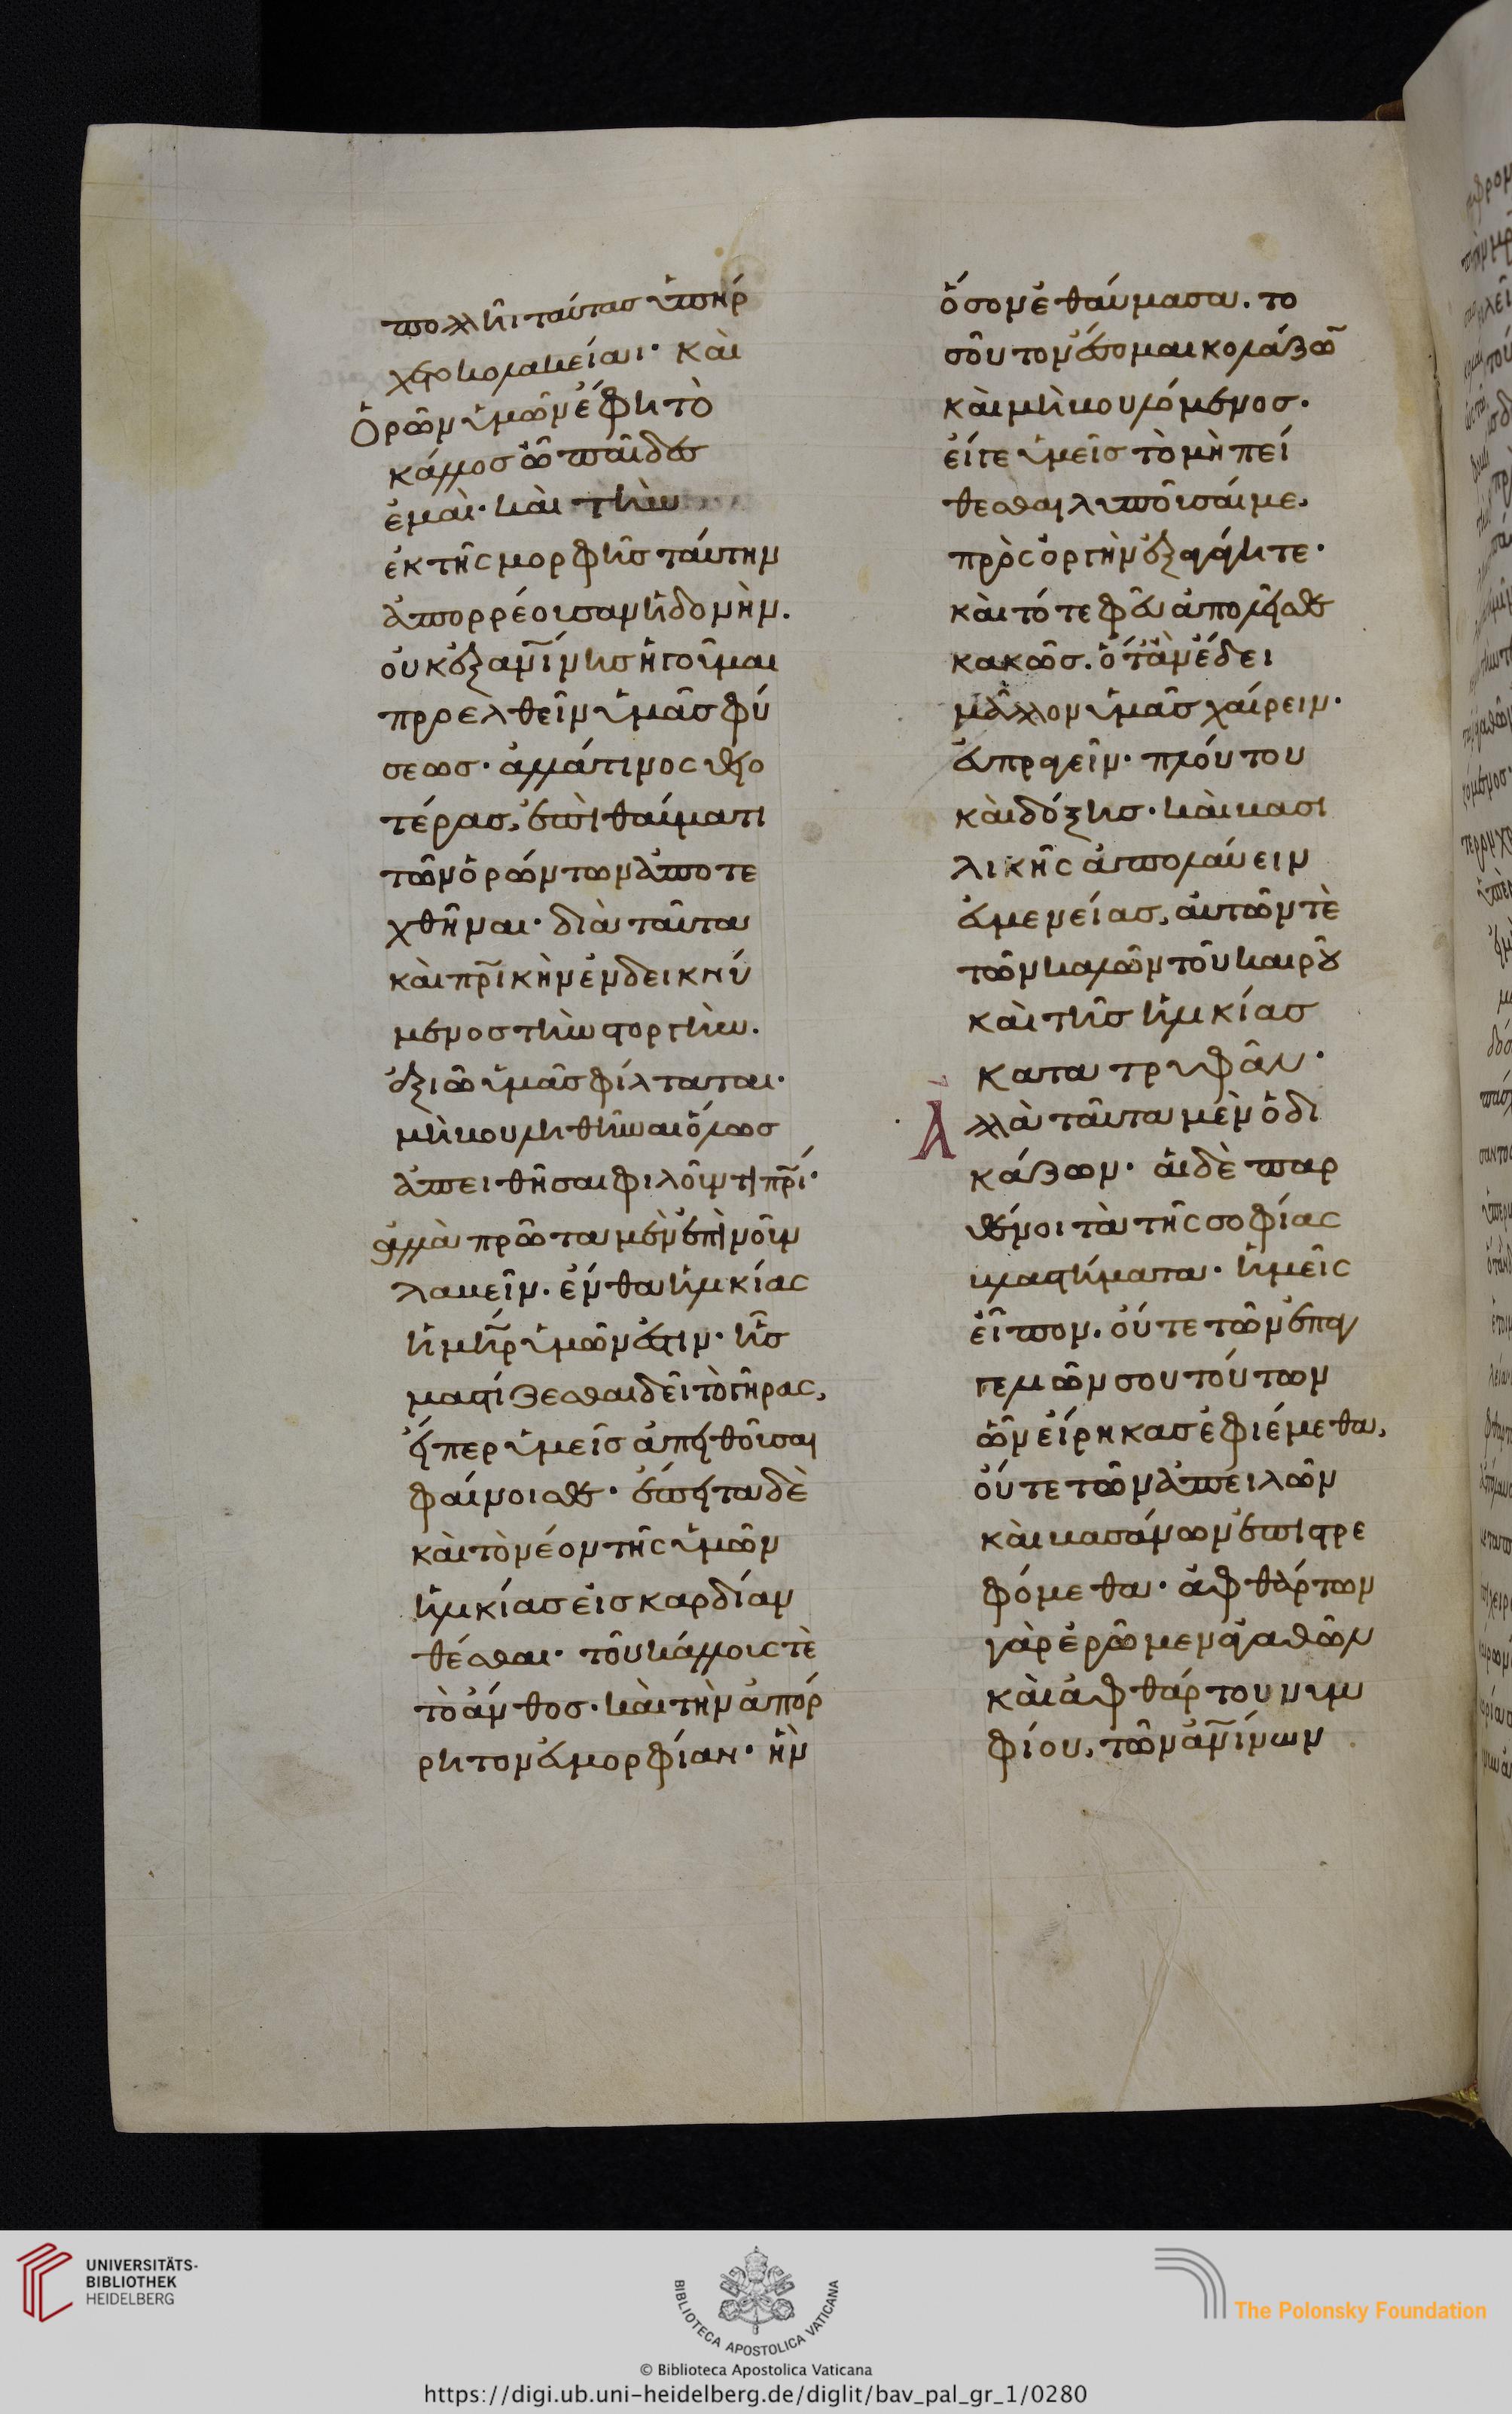 πολλῆι ταύτασ ὑπήρ
χετο κολακείαι· καὶ
Ὁρῶν ὑμῶν ἔφη τὸ
κάλλοσ ὦ παῖδεσ
ἐμαὶ· καὶ τὴν
ἐκ τῆς μορφῆσ ταύτην
ἀπορρέουσαν ἡδονὴν.
οὐκ ἐξ ἀν̅ίνησ ἡγοῦμαι
προελθεῖν ὑμᾶσ φύ
σεωσ· ἀλλά τινος θειο
τέρασ, ἐπὶ θαύματι
τῶν ὁρώντων ἀποτε
χθῆναι· διὰ ταῦτα
καὶ πρ̅ικὴν ἐνδεικνύ
μενοσ τὴν στοργὴν.
ἀξιῶ ὑμᾶσ φίλταται·
μὴ βουληθῆναι ὅλωσ
ἀπειθῆσαι φιλοῦντι πρ̅ί·
ἀλλὰ πρῶτα μὲν ἐπὶ νοῦν
λαβεῖν. ἔνθα ἡλικίας
ἡ μη̅ρ ὑμῶν ἐστιν· ἧσ
μαστίζεσθαι δεῖ τὸ γῆρας,
εἴπερ ὑμεῖσ ἀπειθοῦσαι
φαίνοισθε· ἔπειτα δὲ
καὶ τὸ νέον τῆς ὑμῶν
ἡλικίασ εἰσ καρδίαν
θέσθαι· τοῦ κάλλους τὲ
τὸ ἄνθοσ· καὶ τὴν ἀπόρ
ρητον εὐμορφίαν· ἣν
ὅσον ἐθαύμασα. το
σοῦτον ἔσομαι κολάζω̅
καὶ μὴ βουλόμενοσ·
εἴγε ὑμεῖσ τὸ μὴ πεί
θεσθαι λιποῦσαί με,
πρὸς ὀργὴν ἐξάγητε·
καὶ τότε φεῦ ἀπολεῖσθε
κακῶσ. ὅταν ἔδει
μᾶλλον ὑμᾶσ χαίρειν·
εὐπραγεῖν· πλούτου
καὶ δόξησ· καὶ βασι
λικῆς ἀπολαύειν
εὐμενείασ, αὐτῶν τὲ
τῶν καλῶν τοῦ καιροῦ
καὶ τῆσ ἡλικίασ
κατατρυφᾶν·
Ἀλλὰ ταῦτα μὲν ὁ δι
κάζων· αἱ δὲ παρ
θένοι τὰ τῆς σοφίας
βλαστήματα· ἡμεῖς
εἶπον. οὔτε τῶν ἐπαγ
γελιῶν σου τούτων
ὧν εἴρηκασ ἐφιέμεθα,
οὔτε τῶν ἀπειλῶν
καὶ βασάνων ἐπιστρε
φόμεθα· ἀφθάρτων
γὰρ ἐρῶμεν ἀγαθῶν
καὶ ἀφθάρτου νυμ
φίου, τῶν ἀν̅ίνων
UNIVERSITÄTS-
BIBLIOTHEK
HEIDELBERG
BIBLIOTECA APOSTOLICA VATICANA
The Polonsky Foundation
© Biblioteca Apostolica Vaticana
https://digi.ub.uni-heidelberg.de/diglit/bav_pal_gr_1/0280